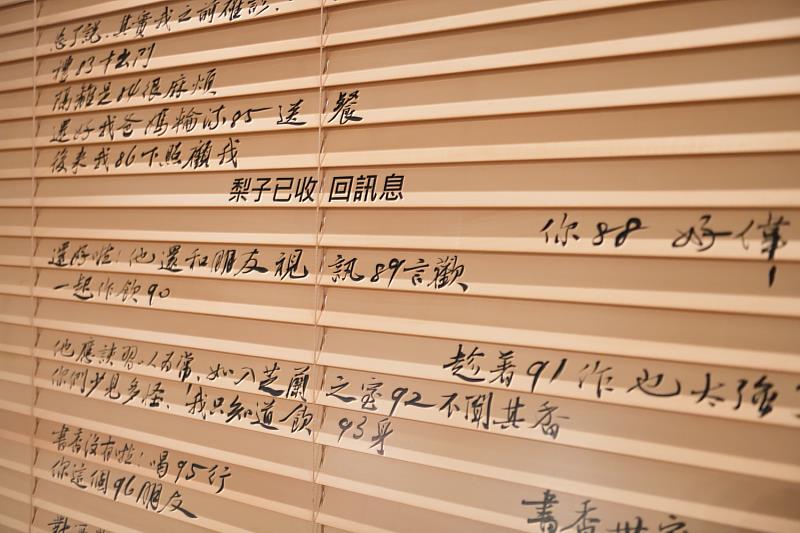 忘了說，其實我之前確診，
禮83十出門
隔離是84很麻煩
還好我爸媽輪流85送餐
後來我86下照顧我
梨子已收回訊息
你88好偉
還好啦！他還和朋友視訊89言歡
一起作飲90
趁著91作也太強
他應該習以為常，如入芝蘭之室92不聞其香
你們少見多怪，我只知道飲93身
書香沒有啦！喝95行
你這個96朋友
書香世家